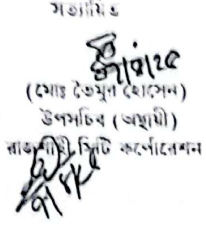 সত্যায়িত
৭/৪/২৫
(মোঃ তৈমুর হোসেন)
উপসচিব (অস্থায়ী)
রাজশাহী সিটি কর্পোরেশন